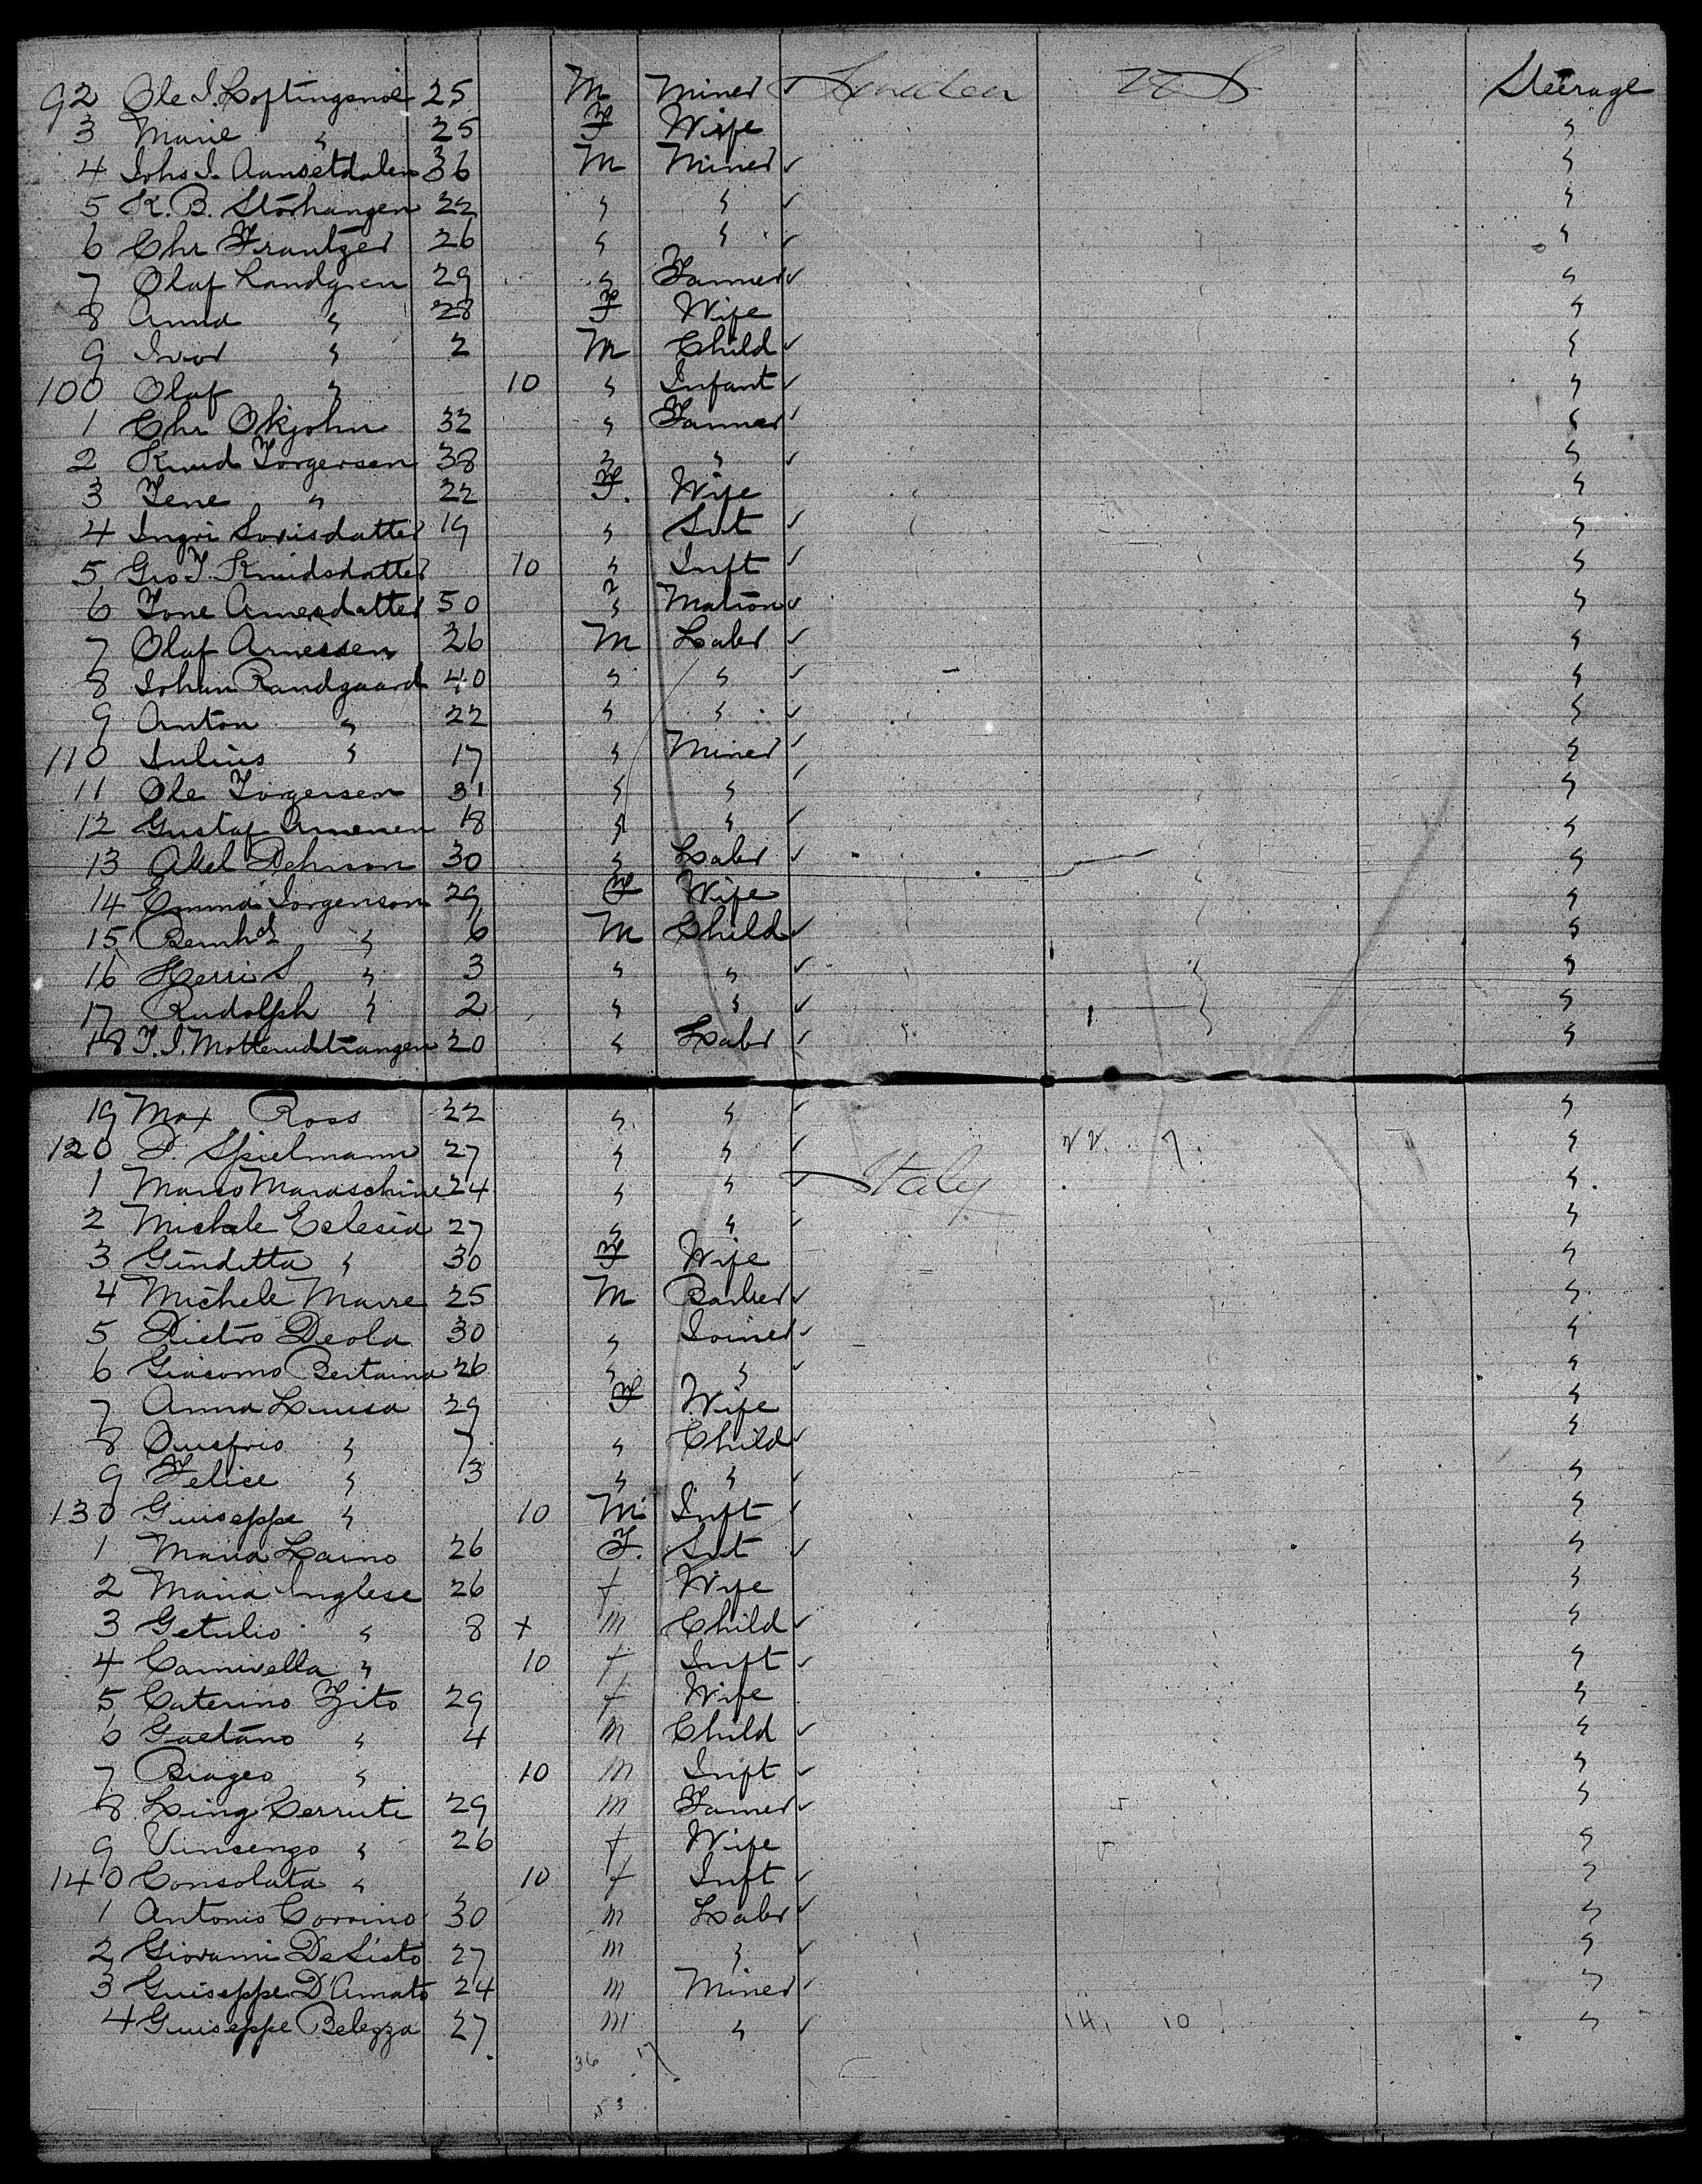 92 Ole I. Loftingsmoe 25 M Miner ✓ Sweden U S Steerage
3 Marie " 25 F Wife "
4 Johs I. Aansetdalen 36 M Miner ✓ "
5 K. B. Storhangen 22 " " ✓ "
6 Chr Frantzer 26 " " ✓ "
7 Olaf Landgren 29 " Farmer ✓ "
8 Anna " 28 F Wife "
9 Ivor " 2 M Child ✓ "
100 Olaf " 10 " Infant ✓ "
1 Chr Okjohn 32 " Farmer ✓ "
2 Knud Torgersen 38 " " ✓ "
3 Tene " 22 F. Wife "
4 Ingri Lovisdatter 19 " Svt ✓ "
5 Gro T. Knudsdatter 10 " Inft ✓ "
6 Tone Arnesdatter 50 " Matron ✓ "
7 Olaf Arnessen 26 M Labr ✓ "
8 Johan Randgaard 40 " " ✓ "
9 Anton " 22 " " ✓ "
110 Julius " 17 " Miner ✓ "
11 Ole Torgersen 31 " " ✓ "
12 Gustaf Arnenen 18 " " ✓ "
13 Abel Pehrson 30 " Labr ✓ "
14 Emma Jorgenson 29 F Wife "
15 Bernhd " 6 M Child ✓ "
16 Herris " 3 " " ✓ "
17 Rudolph " 2 " " ✓ "
18 T. I. Motterudtrangen 20 " Labr ✓ "
19 Max Ross 22 " " ✓ "
120 P. Spielmann 27 " " ✓ "
1 Marco Maraschine 24 " " ✓ Italy "
2 Michele Eclesia 27 " " ✓ "
3 Ginditta " 30 F Wife "
4 Michele Marre 25 M Barber ✓ "
5 Pietro Deola 30 " Joiner ✓ "
6 Giacomo Bertaina 26 " " ✓ "
7 Anna Luisa 29 F Wife "
8 Onofrio " 7 " Child ✓ "
9 Felice " 3 " " ✓ "
130 Giuseppe " 10 M Inft ✓ "
1 Maria Laino 26 F. Svt ✓ "
2 Maria Inglese 26 f Wife "
3 Getulio " 8 + m Child ✓ "
4 Carnivella " 10 f Inft ✓ "
5 Caterino Zito 29 f Wife "
6 Gaetano " 4 m Child ✓ "
7 Biageo " 10 m Inft ✓ "
8 Ling Cerruti 29 m Famer ✓ "
9 Vinsengo " 26 f Wife "
140 Consolata " 10 f Inft ✓ "
1 Antonio Corrino 30 m Labr ✓ "
2 Giovanni DeListo 27 m " ✓ "
3 Guiseppe D'Amato 24 m Miner ✓ "
4 Guiseppe Belezza 27 m " ✓ 14 10 "
36 17
53